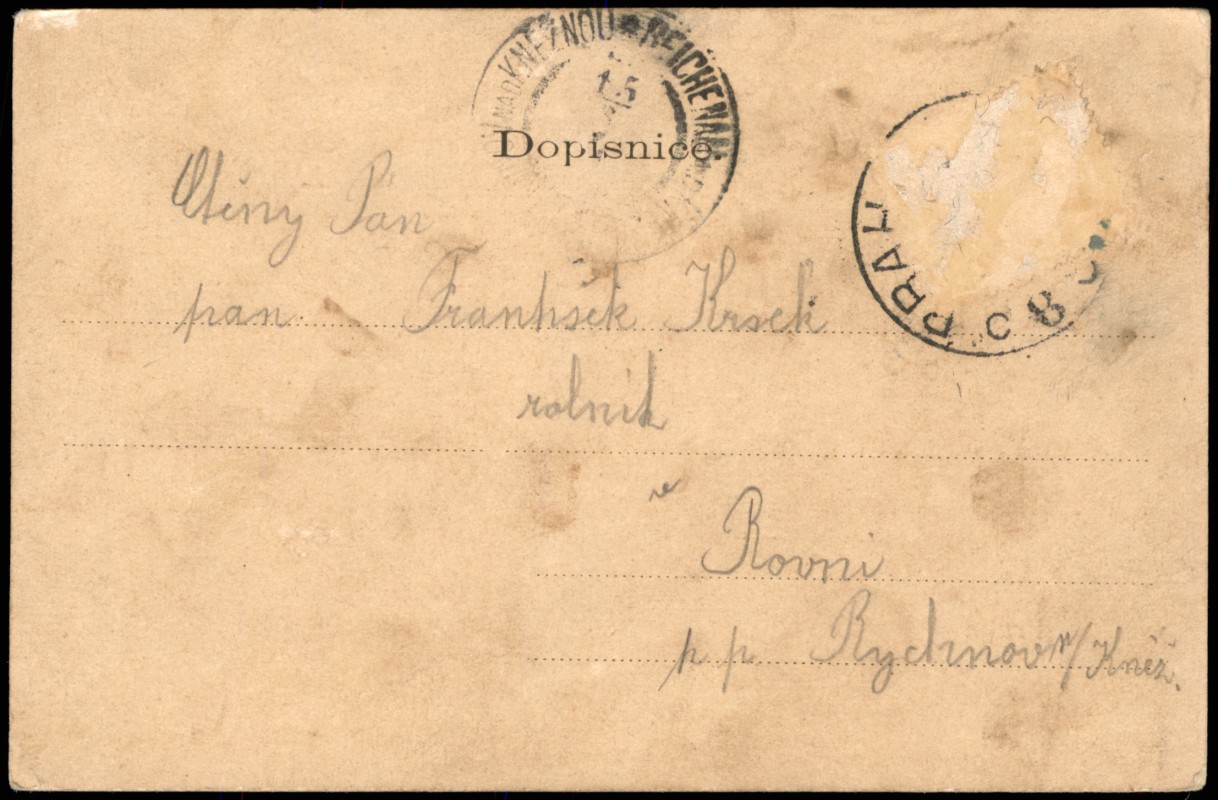 NAD KNĚŽNOU * REICHENAU
15
Dopisnice.
Ctěný Pán
pan František Krsek
rolník
v
Rovni
p p Rychnov n/Kněž.
PRAH